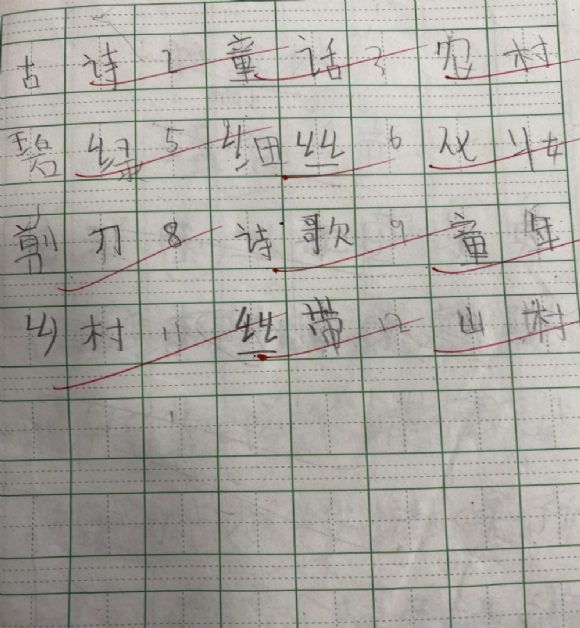 古诗 2 童话 3 农村
碧绿 5 细丝 6 化妆
剪刀 8 诗歌 9 童年
乡村 11 丝带 12 山村